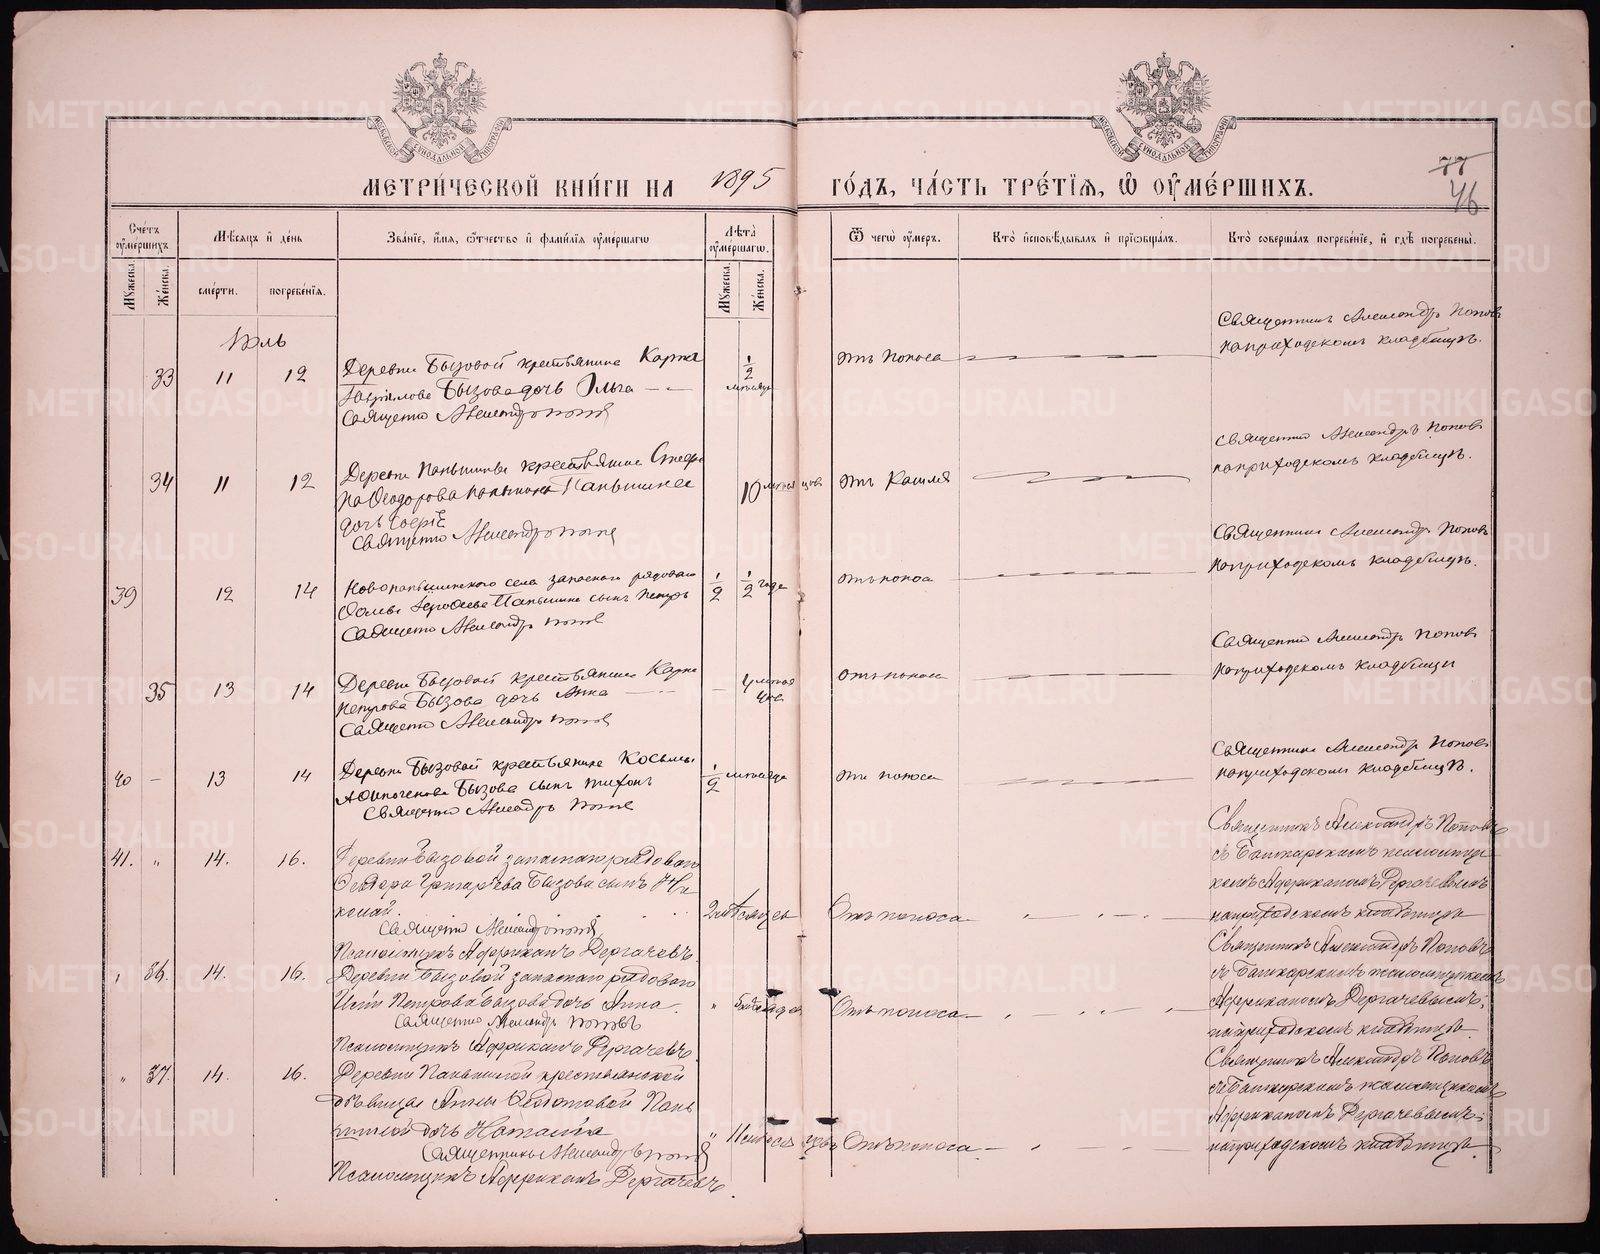 МЕТРИ́ЧЕСКОЙ КНИ́ГИ НА 1895 ГО́ДЪ, ЧА́СТЬ ТРЕ́ТІѦ, Ѡ҆ ОУ҆МЕ́РШИХЪ.
77
46
Сче́тъ оу҆ме́ршихъ.
Мѣ́сѧцъ и҆ де́нь
Зва́нїе, и҆́мѧ, ѻ҆́тчество и҆ фами́лїѧ оу҆ме́ршагѡ
Лѣ́та оу҆ме́ршагѡ.
Ѿ чегѡ̀ оу҆́меръ.
Кто̀ и҆сповѣ́дывалъ и҆ прїѡбща́лъ.
Кто̀ соверша́лъ погребе́нїе, и҆ гдѣ̀ погребены̀.
Мꙋ́жеска.
Же́нска.
сме́рти.
погребе́нїѧ.
Мꙋ́жеска.
Же́нска.
Юль
33 11 12
Деревни Бызовой крестьянина Карпа
Бызова дочь Ольга
Священно Александръ Поповъ
1/2 месяца
отъ поноса
Священникъ Александръ Поповъ
на приходскомъ кладбищѣ.
34 11 12
Деревни Паньшиной крестьянина Стефа
на Ѳеодорова Паньшина
дочь
Священно Александръ Поповъ
10 месяцовъ
отъ Кашля
Священно Александръ Поповъ
на приходскомъ кладбищѣ.
39 12 14
Новопаньшинскаго села запаснаго рядоваго
Паньшина сынъ Петръ
Священно Александръ Поповъ
1/2 1/2 года
отъ поноса
Священникъ Александръ Поповъ
на приходскомъ кладбищѣ.
35 13 14
Деревни Бызовой крестьянина Карпа
Петрова Бызова дочь Анна
Священно Александръ Поповъ
4 месяцовъ
отъ поноса
Священно Александръ Поповъ
на приходскомъ кладбищѣ
40 – 13 14
Деревни Бызовой крестьянина Косьмы
Бызова сынъ Тихонъ
Священно Александръ Поповъ
1/2 месяца
отъ поноса
Священникъ Александръ Поповъ
на приходскомъ кладбищѣ.
41. " 14. 16.
Деревни Бызовой запаснаго рядоваго
Ѳеодора Григорьева Бызова сынъ Ни
колай.
Священно Александръ Поповъ
Псаломщикъ Африканъ Дергачевъ.
2 мѣсяцевъ
Отъ поноса
Священникъ Александръ Поповъ
съ Башкарскимъ псаломщи
комъ Африканомъ Дергачевымъ
на приходскомъ кладбищѣ
36. 14. 16.
Деревни Бызовой запаснаго рядоваго
Петрова Бызова дочь Анна.
Священно Александръ Поповъ
Псаломщикъ Африканъ Дергачевъ.
Отъ поноса
Священникъ Александръ Поповъ
съ Башкарскимъ псаломщикомъ
Африканомъ Дергачевымъ;
на приходскомъ кладбищѣ.
" 37. 14. 16.
Деревни Паньшиной крестьянской
дѣвицы Анны Пань
шиной дочь Наталія
Священникъ Александръ Поповъ
Псаломщикъ Африканъ Дергачевъ.
" 11 мѣсяцевъ
Отъ поноса
Священникъ Александръ Поповъ
съ Башкарскимъ псаломщикомъ
Африканомъ Дергачевымъ;
на приходскомъ кладбищѣ.
METRIKI.GASO-URAL.RU